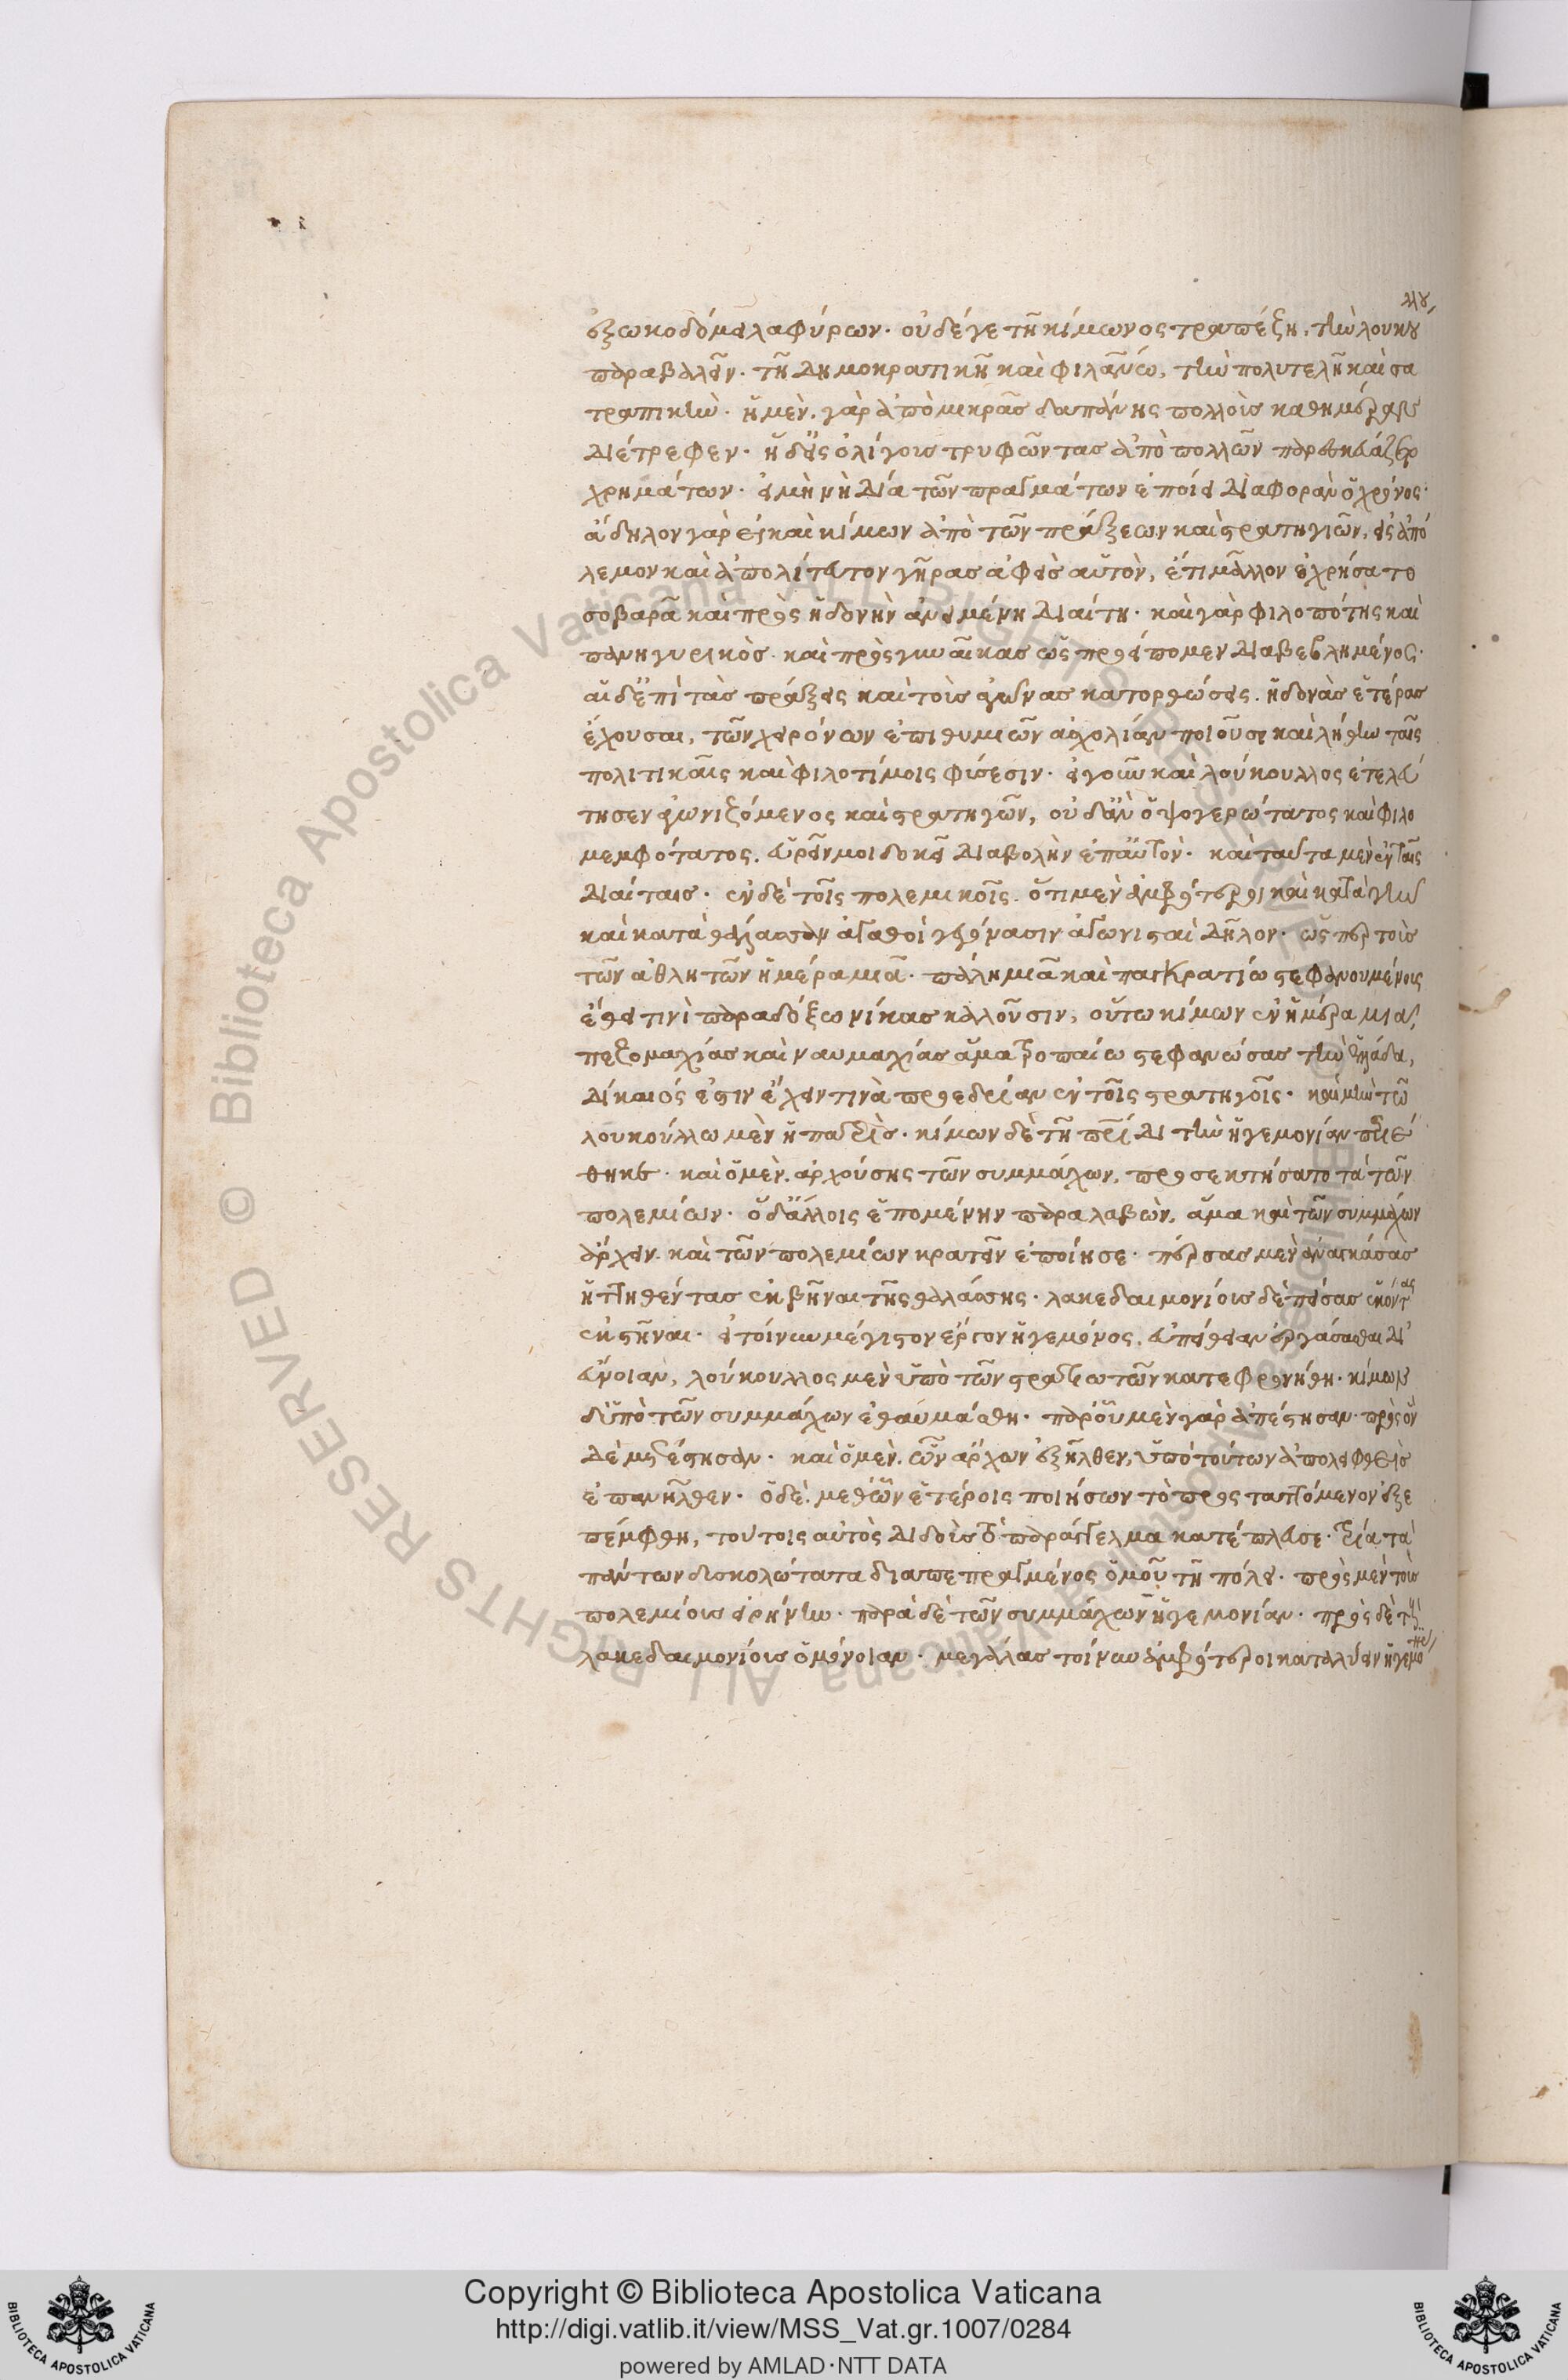 ἐξωκοδόμει λαφύρων. οὐδέ γε τῆ κίμωνος τραπέζη, τὴν λουκούλλου
παραβαλεῖν. τῆ δημοκρατικῆ καὶ φιλανθρώπω, τὴν πολυτελῆ καὶ σα
τραπικήν. ἡ μὲν. γὰρ ἀπὸ μικρᾶς δαπάνης πολλοὺς καθημέραν
διέτρεφεν. ἡ δ' εἰς ὀλίγους τρυφῶντας ἀπὸ πολλῶν παρεσκευάζετο
χρημάτων. εἰ μὴ νὴ δία τῶν πραγμάτων ἐποίει διαφορὰν ὁ χρόνος.
ἄδηλον γὰρ εἰ καὶ κίμων ἀπὸ τῶν πράξεων καὶ στρατηγιῶν, εἰς ἀπό
λεμον καὶ ἀπολίτευτον γῆρας ἀφεὶς αὑτὸν, ἔτι μᾶλλον ἐχρήσατο
σοβαρᾶ καὶ πρὸς ἡδονὴν ἀνειμένη διαίτη. καὶ γὰρ φιλοπότης καὶ
πανηγυρικὸς. καὶ πρὸς γυναῖκας ὡς προείπομεν διαβεβλημένος.
αἱ δ' ἐπὶ τὰς πράξεις καὶ τοὺς ἀγῶνας κατορθώσεις. ἡδονὰς ἑτέρας
ἔχουσαι, τῶν χειρόνων ἐπιθυμιῶν ἀσχολίαν ποιοῦσι καὶ λήθην ταῖς
πολιτικαῖς καὶ φιλοτίμοις φύσεσιν. εἰ γοῦν καὶ λούκουλλος ἐτελεύ
τησεν ἀγωνιζόμενος καὶ στρατηγῶν, οὐδ' ἂν ὁ ψογερώτατος καὶ φιλο
μεμφότατος. εὑρεῖν μοι δοκεῖ διαβολὴν ἐπ' αὐτὸν. καὶ ταῦτα μὲν ἐν ταῖς
διαίταις. ἐν δὲ τοῖς πολεμικοῖς. ὅτι μὲν ἀμφότεροι καὶ κατὰ γῆν
καὶ κατὰ θάλασσαν ἀγαθοὶ γεγόνασιν ἀγωνισταὶ δῆλον. ὥσπερ τοὺς
τῶν ἀθλητῶν ἡμέρα μιᾶ. πάλη μιᾶ καὶ παγκρατίω στεφανουμένους
ἔθει τινὶ παραδόξω νίκας καλοῦσιν, οὕτω κίμων ἐν ἡμέρα μιᾶ
πεζομαχίας καὶ ναυμαχίας ἅμα τροπαίω στεφανώσας τὴν ἑλλάδα,
δίκαιός ἐστιν ἔχειν τινὰ προεδρίαν ἐν τοῖς στρατηγοῖς. καὶ μὴν τῶ
λουκούλλω μὲν ἡ πατρὶς. κίμων δὲ τῆ πατρίδι τὴν ἡγεμονίαν περιέ
θηκε. καὶ ὁ μὲν. ἀρχούσης τῶν συμμάχων, προσεκτήσατο τὰ τῶν
πολεμίων. ὁ δ' ἄλλοις ἑπομένην παραλαβὼν, ἅμα καὶ τῶν συμμάχων
ἄρχειν. καὶ τῶν πολεμίων κρατεῖν ἐποίησε. πέρσας μὲν ἀναγκάσας
ἡττηθέντας ἐκβῆναι τῆς θαλάσσης. λακεδαιμονίους δὲ πείσας ἑκόντας
ἐκστῆναι. εἰ τοίνυν μέγιστον ἔργον ἡγεμόνος. εὐπείθειαν ἐργάσασθαι δι'
εὔνοιαν, λούκουλλος μὲν ὑπὸ τῶν στρατιωτῶν κατεφρονήθη. κίμων
δ' ὑπὸ τῶν συμμάχων ἐθαυμάσθη. παρ' οὗ μὲν γὰρ ἀπέστησαν. πρὸς ὃν
δὲ μετέστησαν. καὶ ὁ μὲν. ὧν ἄρχων ἐξῆλθεν, ὑπὸ τούτων ἀπολειφθεὶς
ἐπανῆλθεν. ὁ δὲ. μεθ' ὧν ἑτέροις ποιήσων τὸ προσταττόμενον ἐξε
πέμφθη, τούτοις αὐτὸς διδοὺς τὸ παράγγελμα κατέπλευσε. τρία τὰ
πάντων δυσκολώτατα διαπεπραγμένος ὁμοῦ τῆ πόλει. πρὸς μὲν τοὺς
πολεμίους εἰρήνην. παρὰ δὲ τῶν συμμάχων ἡγεμονίαν. πρὸς δὲ τοὺς
λακεδαιμονίους ὁμόνοιαν. μεγάλας τοίνυν ἀμφότεροι καταλύειν ἡγεμο
Copyright © Biblioteca Apostolica Vaticana
http://digi.vatlib.it/view/MSS_Vat.gr.1007/0284
powered by AMLAD·NTT DATA